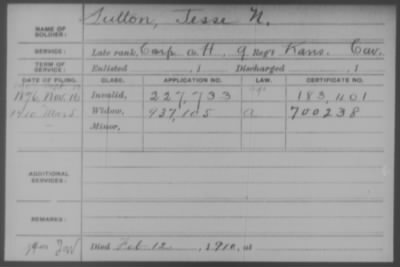 NAME OF SOLDIER: Sutton, Jesse N.
SERVICE: Late rank, Corp Co. H, 9 Reg't Kans. Cav.
TERM OF SERVICE: Enlisted , 1 Discharged , 1
DATE OF FILING. CLASS. APPLICATION NO. LAW. CERTIFICATE NO.
1876 Nov. 16 Invalid, 227,733 183,401
1910 Mar 5 Widow, 937,105 a 700238
Minor,
ADDITIONAL SERVICES:
REMARKS:
Died Feb 12, 1910, at